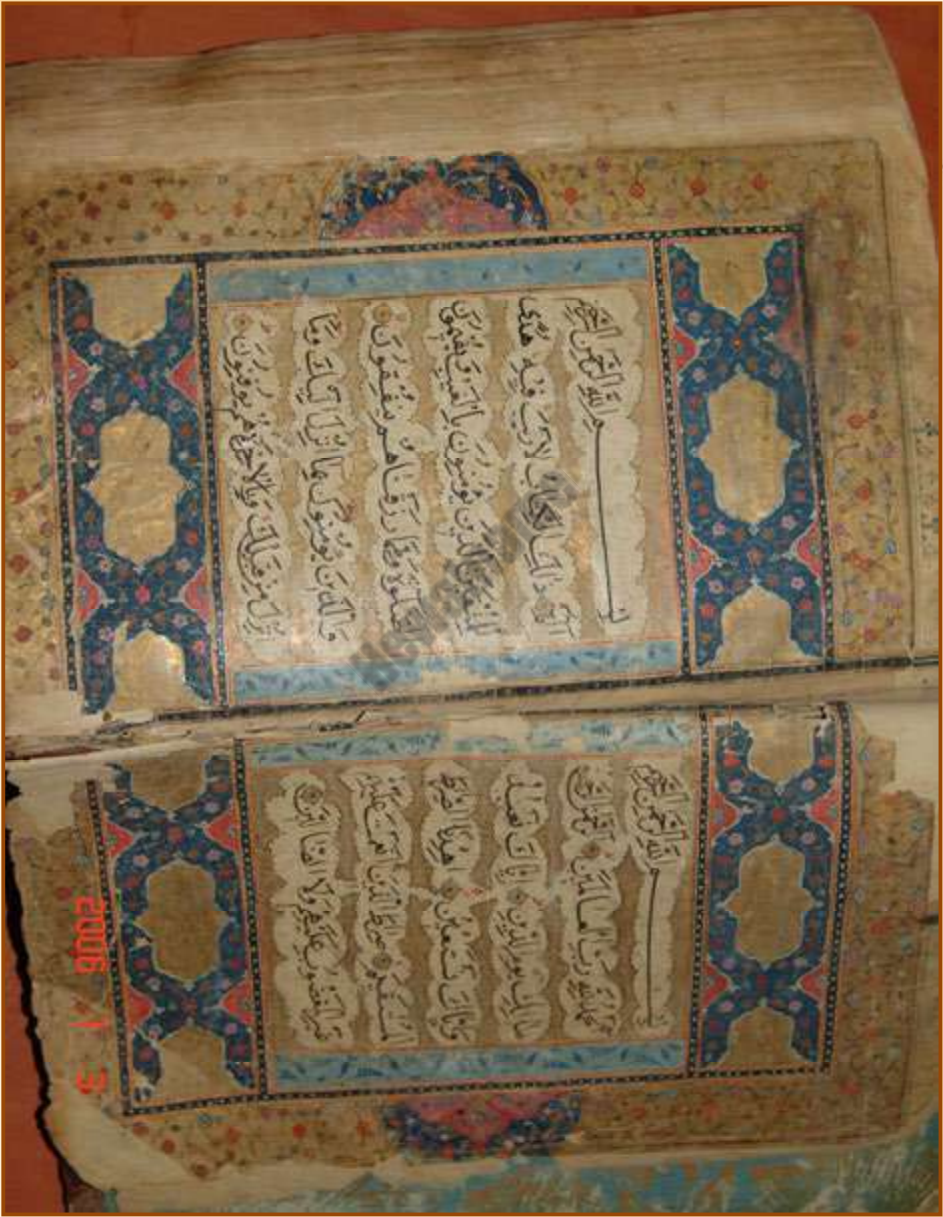 بِسْمِ اللَّهِ الرَّحْمَنِ الرَّحِيمِ
لِلَّهِ رَبِّ الْعَالَمِينَ الرَّحْمَنِ
مَالِكِ يَوْمِ الدِّينِ إِيَّاكَ نَعْبُدُ
وَإِيَّاكَ نَسْتَعِينُ اهْدِنَا الصِّرَاطَ
الْمُسْتَقِيمَ صِرَاطَ الَّذِينَ أَنْعَمْتَ عَلَيْهِمْ
غَيْرِ الْمَغْضُوبِ عَلَيْهِمْ وَلَا الضَّالِّينَ
بِسْمِ اللَّهِ الرَّحْمَنِ الرَّحِيمِ
الم ذَلِكَ الْكِتَابُ لَا رَيْبَ فِيهِ هُدًى
لِلْمُتَّقِينَ الَّذِينَ يُؤْمِنُونَ بِالْغَيْبِ وَيُقِيمُونَ
الصَّلَوةَ وَمِمَّا رَزَقْنَاهُمْ يُنْفِقُونَ
وَالَّذِينَ يُؤْمِنُونَ بِمَا أُنْزِلَ إِلَيْكَ وَمَا
أُنْزِلَ مِنْ قَبْلِكَ وَبِالْآخِرَةِ هُمْ يُوقِنُونَ
2006 1 3